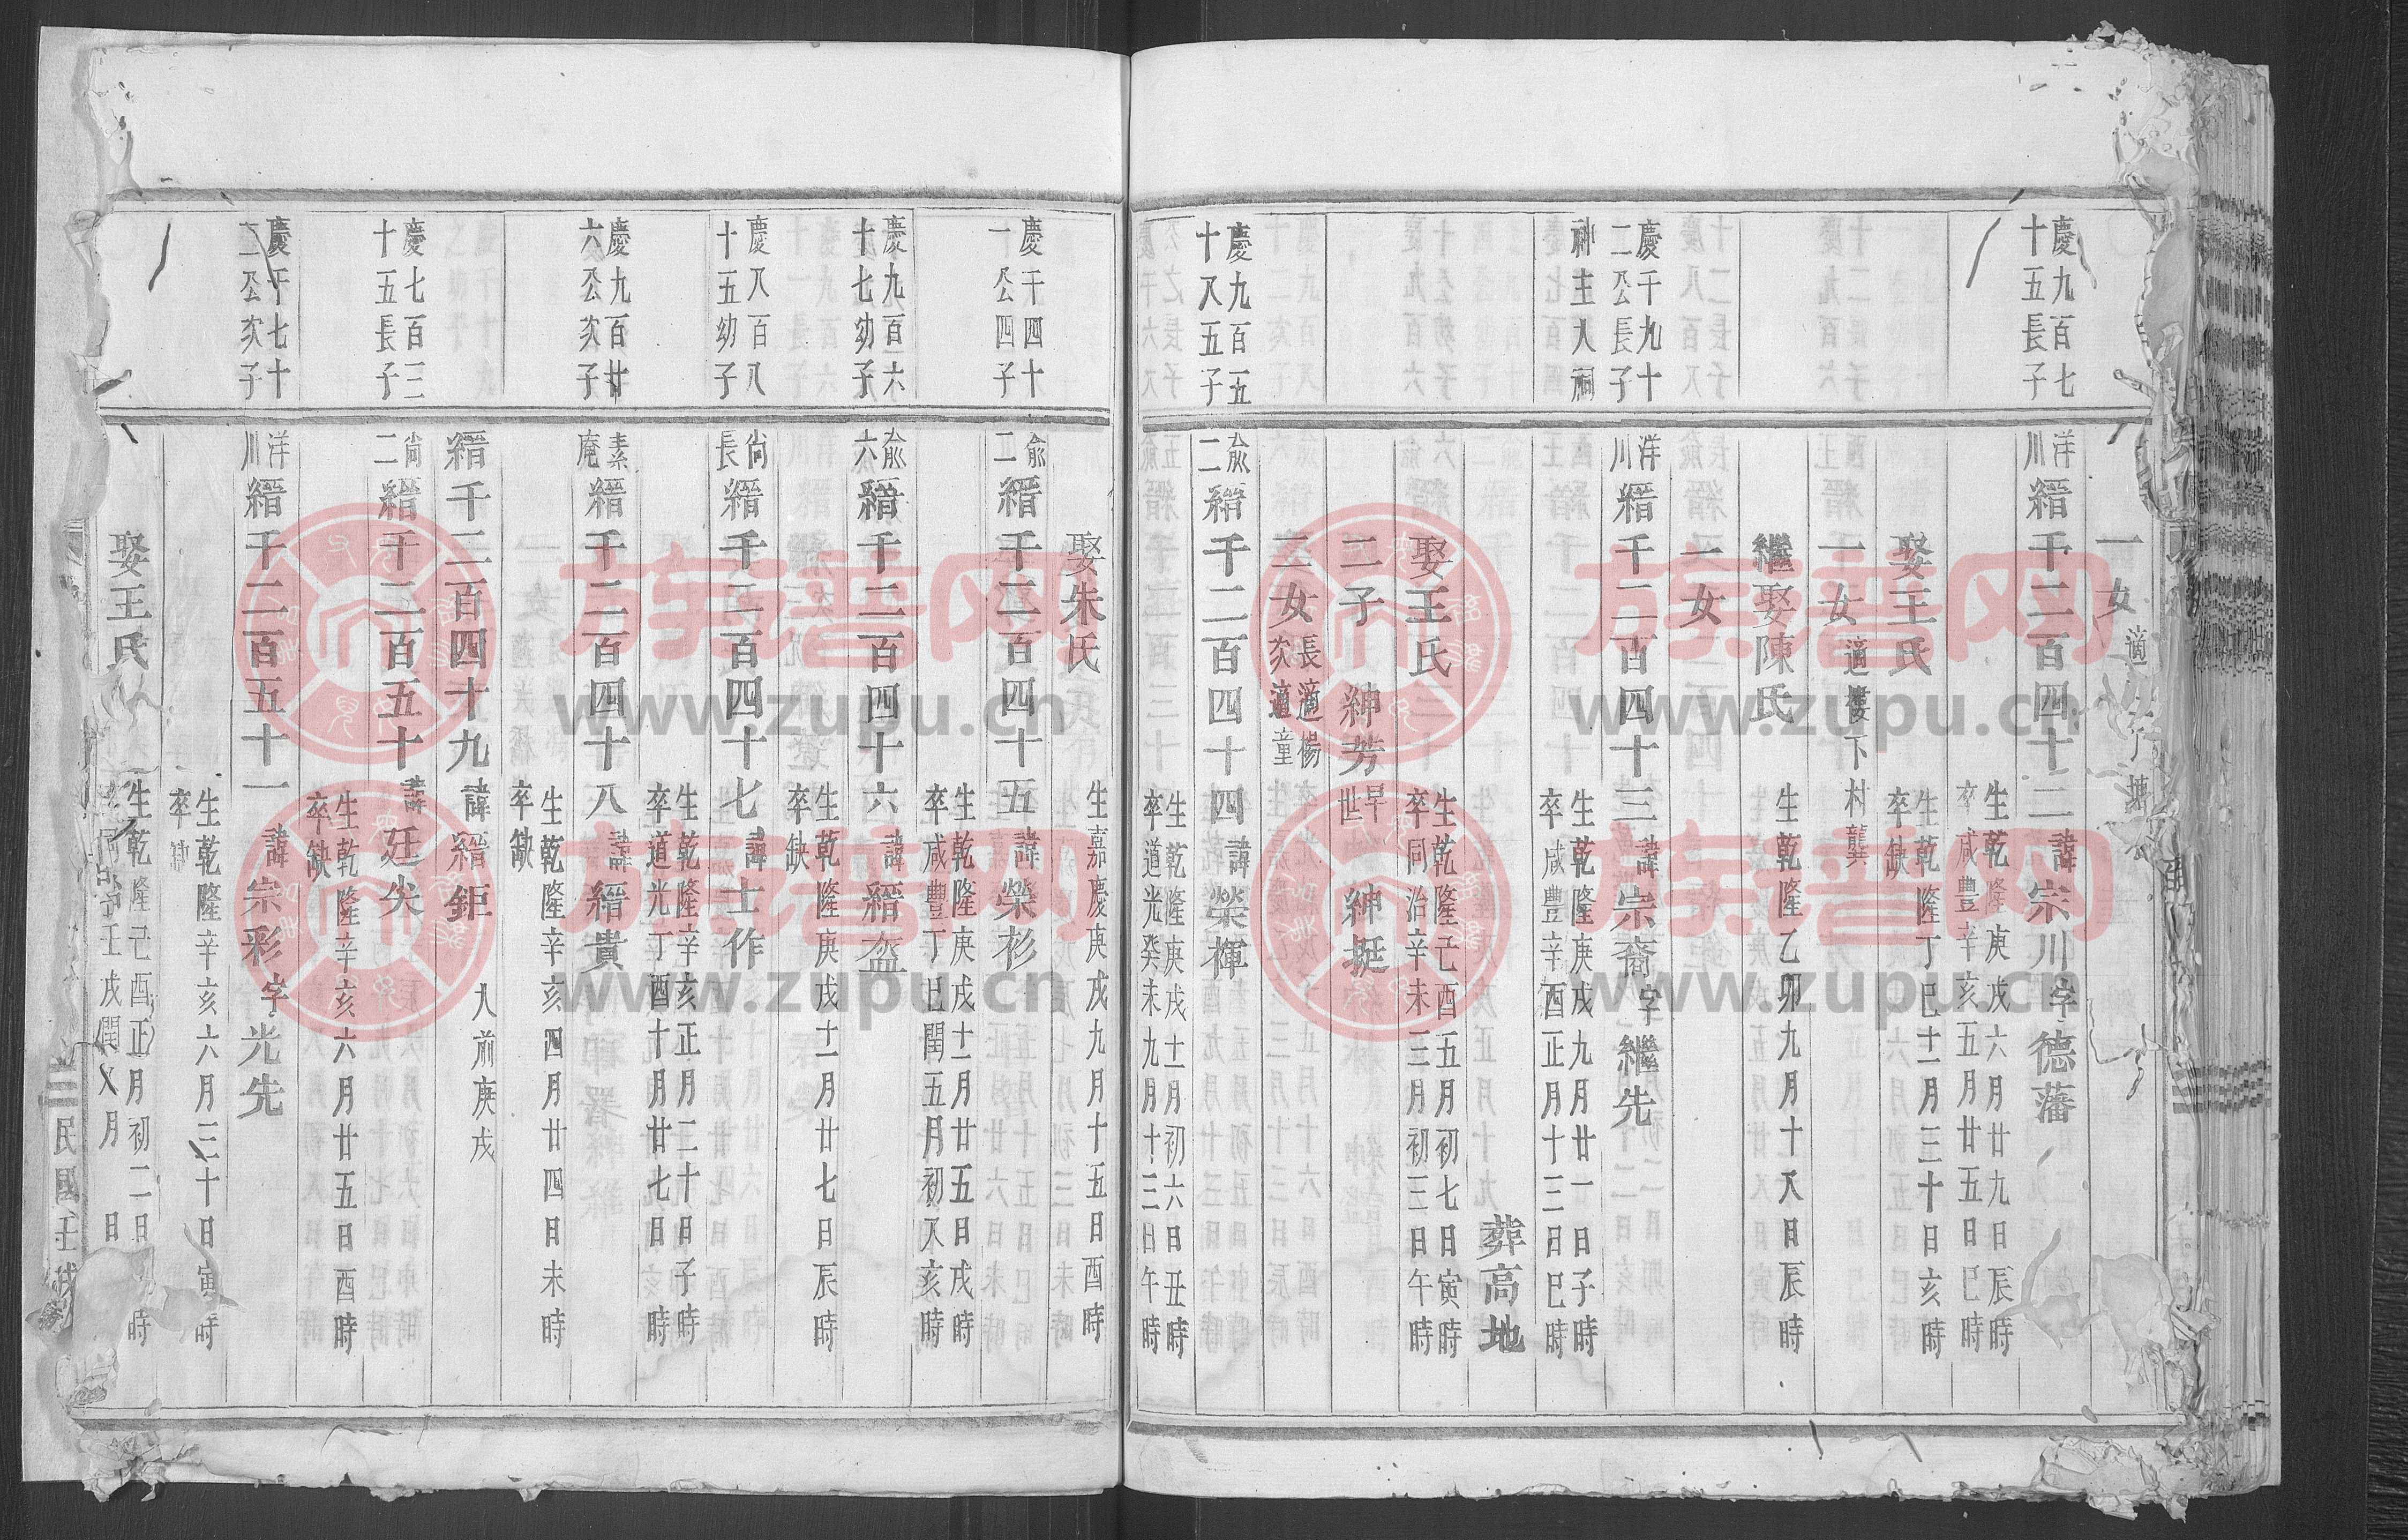 一女 適
慶九百七
十五長子
洋川縉千二百四十二 諱宗川字德藩
生乾隆庚戌六月廿九日辰時
卒咸豐辛亥五月廿五日巳時
娶王氏
生乾隆丁巳十二月三十日亥時
卒缺
一女 適樓下村龔
繼娶陳氏 生乾隆乙卯九月十八日辰時
一女
慶千九十
二公長子
神主入祠
洋川縉千二百四十三 諱宗裔字繼先
生乾隆庚戌九月廿一日子時
卒咸豐辛酉正月十三日巳時
葬高地
娶王氏
生乾隆己酉五月初七日寅時
卒同治辛未三月初三日午時
二子 紳芳早世 紳挺
二女 長適楊 次適童
慶九百五
十八五子
俞二縉千二百四十四 諱榮襌
生乾隆庚戌十一月初六日丑時
卒道光癸未九月十三日午時
娶朱氏 生嘉慶庚戌九月十五日酉時
慶千四十
一公四子
俞二縉千二百四十五 諱榮衫
生乾隆庚戌十一月廿五日戌時
卒咸豐丁巳閏五月初八亥時
慶九百六
十七幼子
俞六縉千二百四十六 諱縉盔
生乾隆庚戌十一月廿七日辰時
卒缺
慶八百八
十五幼子
尙長縉千二百四十七 諱士作
生乾隆辛亥正月二十日子時
卒道光丁酉十月廿七日時
慶九百廿
六公次子
素庵縉千二百四十八 諱縉貴
生乾隆辛亥四月廿四日未時
卒缺
縉千二百四十九 諱縉鉅 入前庚戌
慶七百三
十五長子
尙二縉千二百五十 諱廷尖
生乾隆辛亥六月廿五日酉時
卒缺
慶千七十
二公次子
洋川縉千二百五十一 諱宗彩字光先
生乾隆辛亥六月三十日寅時
卒缺
娶王氏
生乾隆己酉正月初二日 時
壬戌閏八月 日
民國壬戌
族譜网
www.zupu.cn
族譜网
www.zupu.cn
族譜网
www.zupu.cn
族譜网
www.zupu.cn